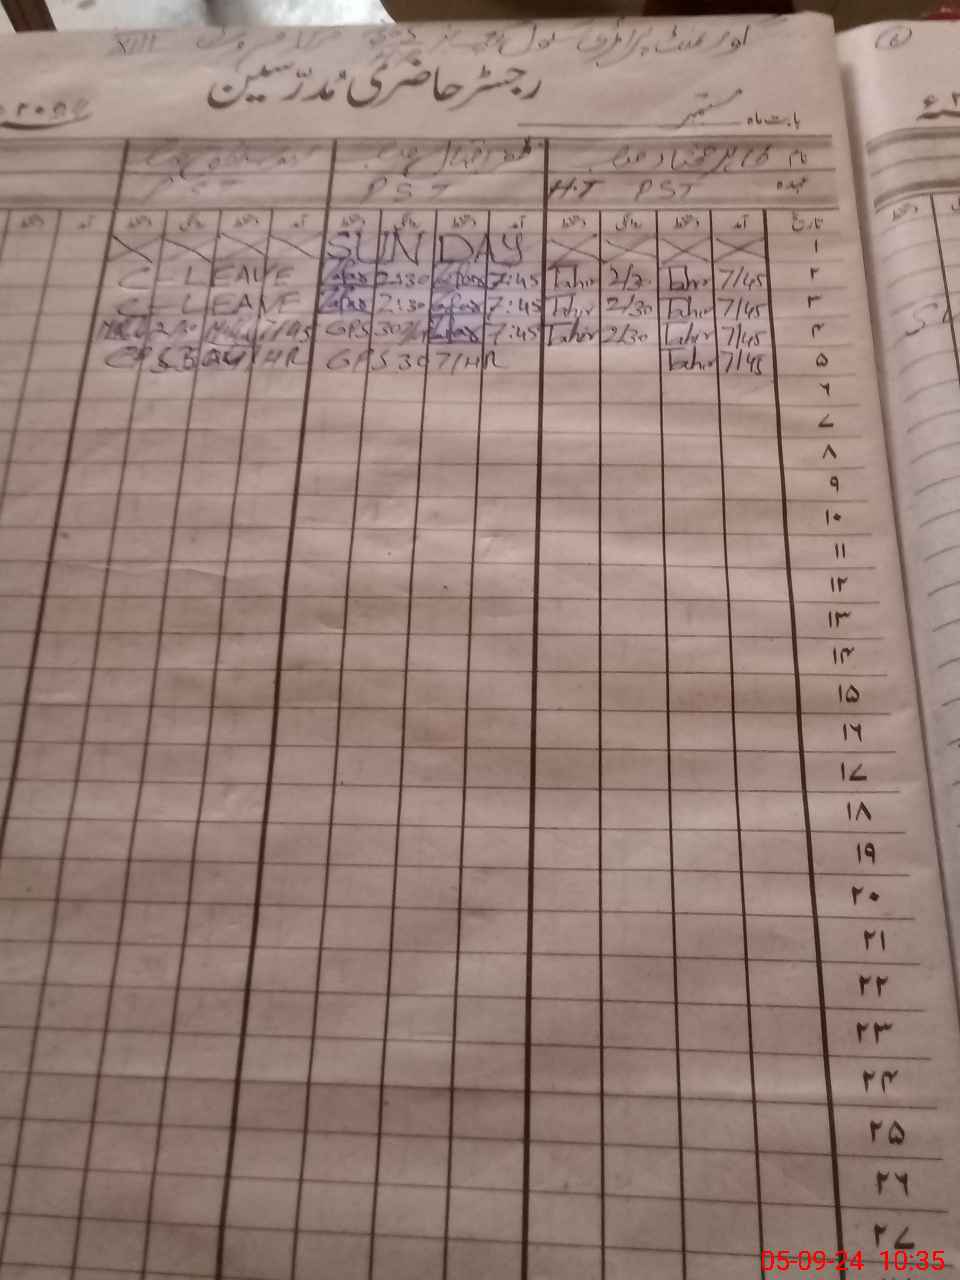 گورنمنٹ پرائمری سکول XIII
رجسٹر حاضری مُدرّسین
بابت ماہ ستمبر
نام طاہر صاحب ظفر اقبال صاحب
عہدہ H.T PST PST PST
تاریخ آمد دستخط روانگی دستخط آمد دستخط روانگی دستخط آمد دستخط روانگی دستخط آمد دستخط
۱ SUN DAY
۲ 7/45 Tahir 2/30 Tahir 7:45 Zafar 2:30 Zafar C-LEAVE
۳ 7/45 Tahir 2/30 Tahir 7:45 Zafar 2:30 Zafar C-LEAVE
۴ 7/45 Tahir 2/30 Tahir 7:45 Zafar GPS 30/ 7/45 2/30
۵ 7/45 Tahir GPS 30 7/HR GPS
۶
۷
۸
۹
۱۰
۱۱
۱۲
۱۳
۱۴
۱۵
۱۶
۱۷
۱۸
۱۹
۲۰
۲۱
۲۲
۲۳
۲۴
۲۵
۲۶
۲۷
05-09-24 10:35